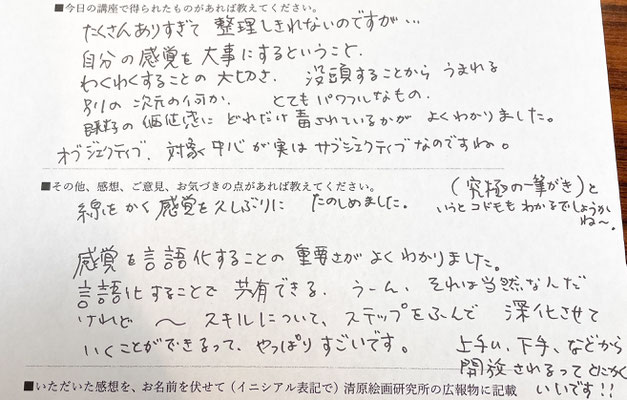 ■今日の講座で得られたものがあれば教えてください。
たくさんありすぎて 整理しきれないのですが…
自分の感覚を大事にするということ、
わくわくすることの大切さ、 没頭することから うまれる
別の次元の何か、 とてもパワフルなもの。
既存の価値感に どれだけ毒されているかが よくわかりました。
オブジェクティブ、対象中心が実はサブジェクティブなのですね。
■その他、感想、ご意見、お気づきの点があれば教えてください。
線をかく感覚を久しぶりに たのしめました。
(究極の一筆がき)と
いうとコドモもわかるでしょうか
ね〜。
感覚を言語化することの重要さがよくわかりました。
言語化することで 共有できる、 うーん、それは当然なんだ
けれど 〜 スキルについて、ステップをふんで 深化させて
いくことができるって、やっぱりすごいです。
上手い、下手、などから
開放されるって とにかく
いいです!!
■いただいた感想を、お名前を伏せて(イニシアル表記で)清原絵画研究所の広報物に記載